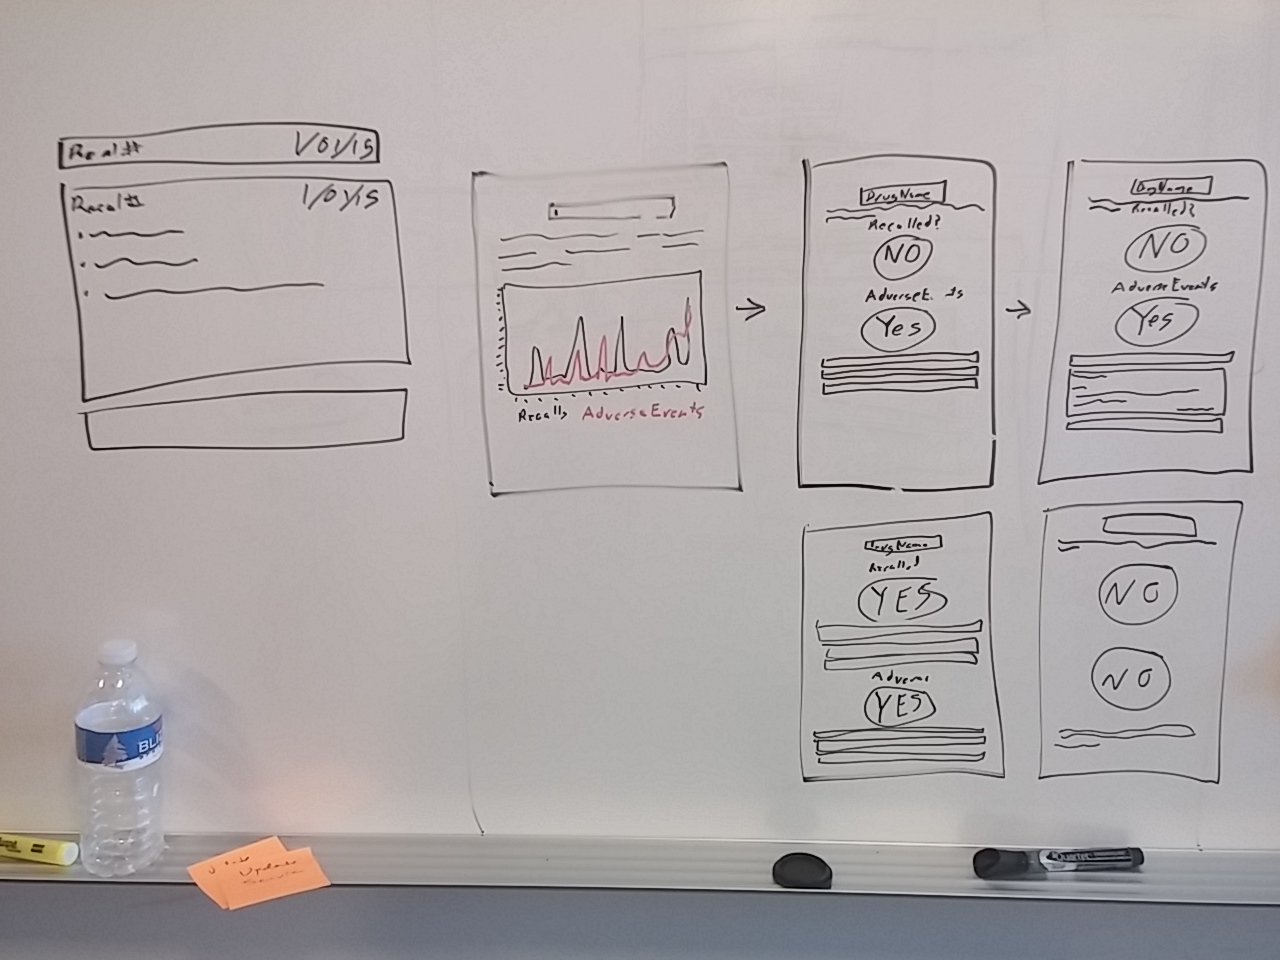 Recal# 1/01/15
Recal# 1/01/15
Recalls Adverse Events
DrugName
Recalled?
NO
Yes
DrugName
Recalled?
NO
Adverse Events
Yes
DrugName
Recalled
YES
Advers
YES
NO
NO
Update